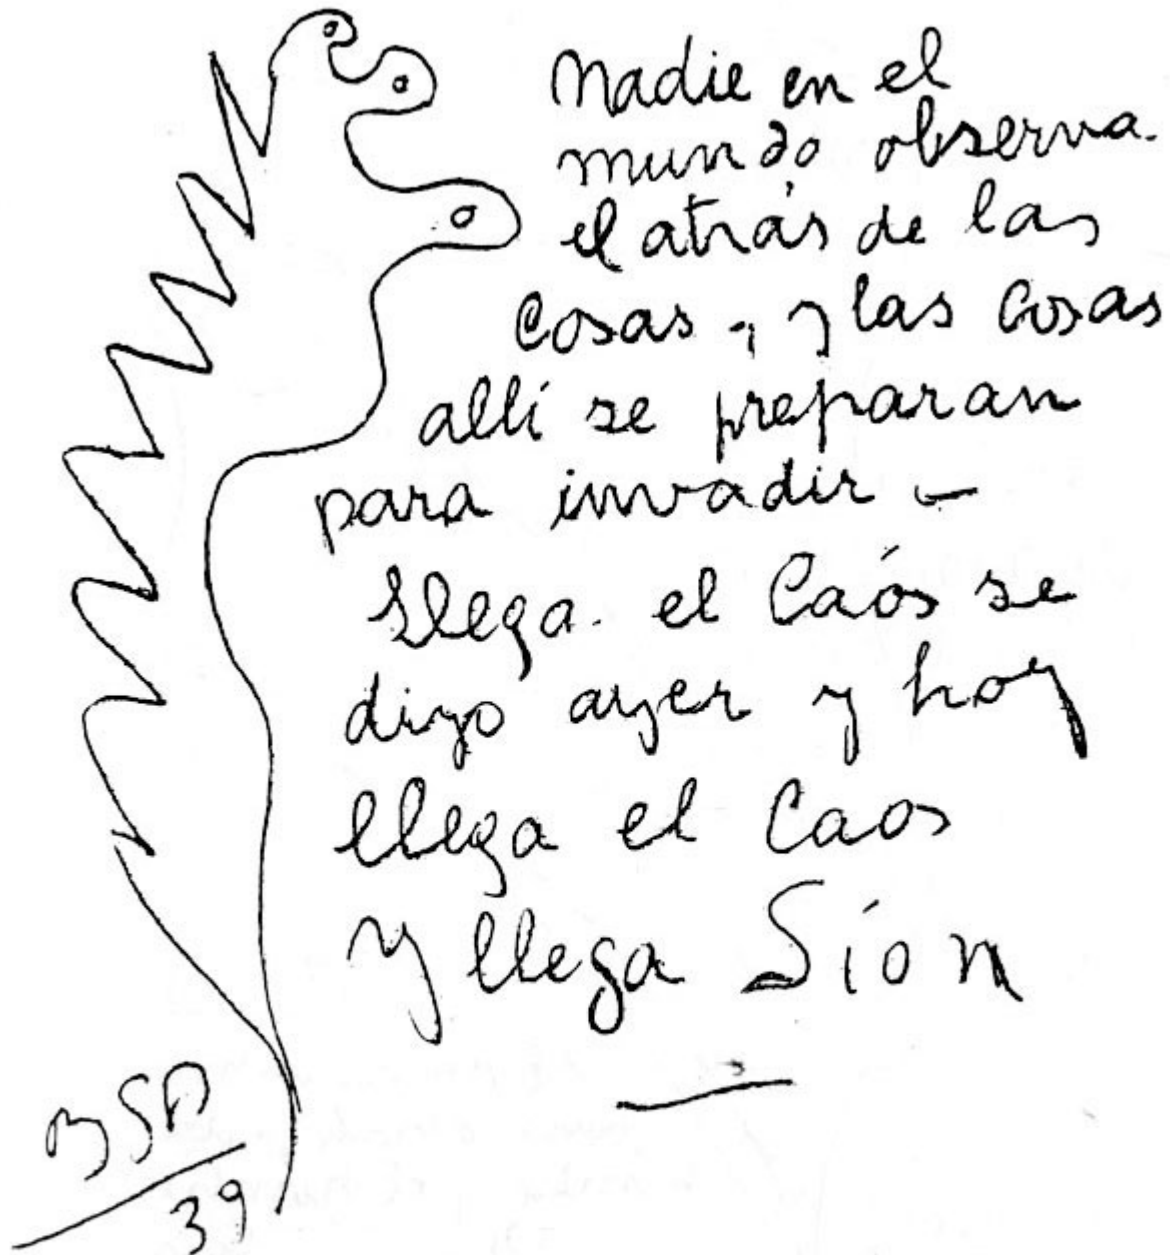 Nadie en el
mundo observa.
el atrás de las
cosas, y las cosas
allí se preparan
para invadir -
Llega. el Caós se
dijo ayer y hoy
llega el Caos
y llega Sión
BSP
39